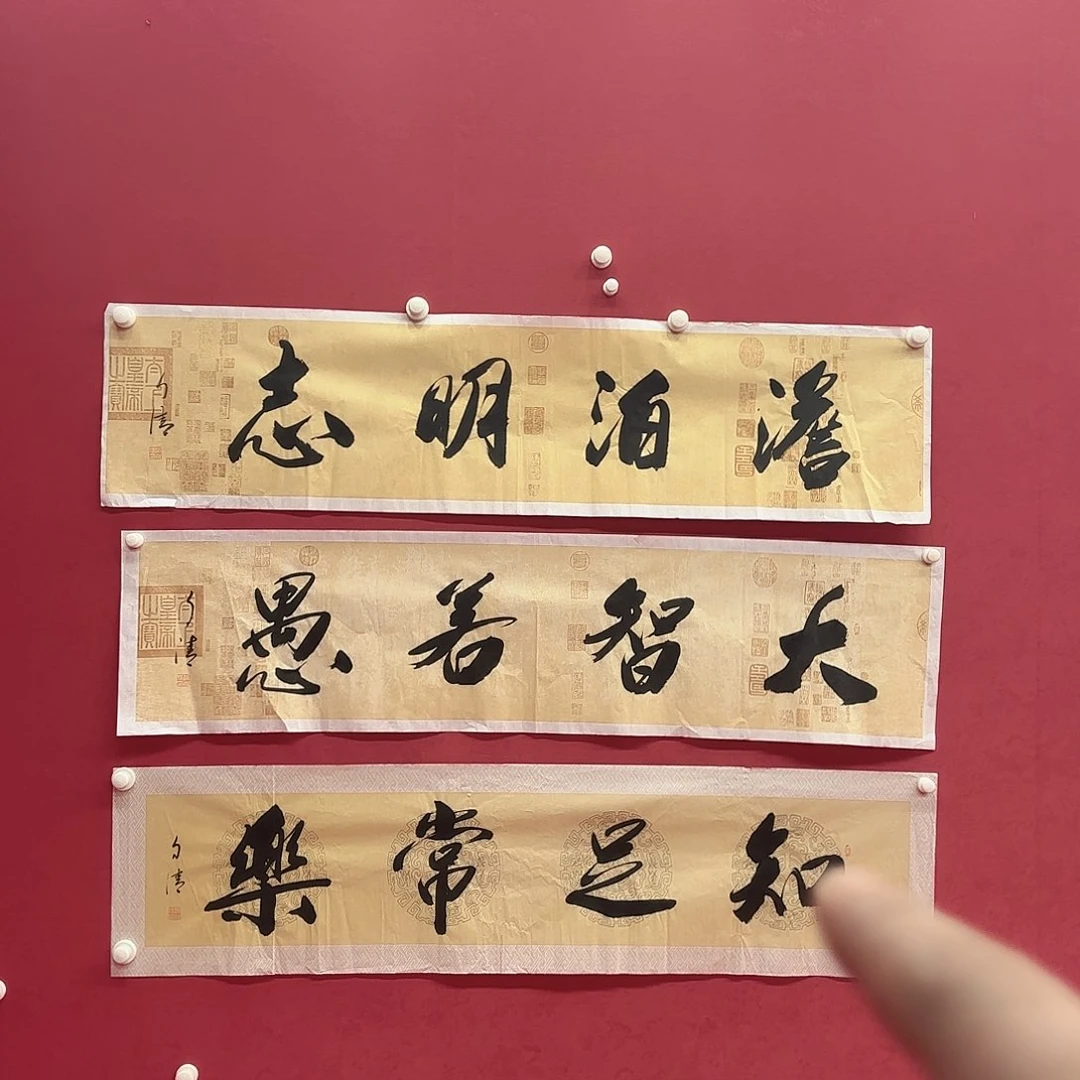 澹泊明志
大智若愚
知足常樂